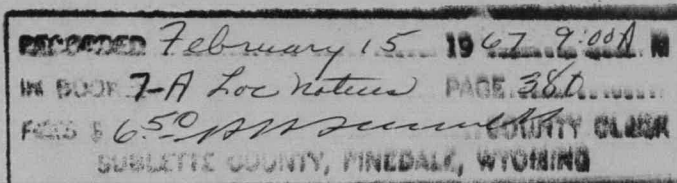 RECORDED February 15 19 67 9:00 A M
IN BOOK 7-A Loc notices PAGE 380
FEES $ 6.50 COUNTY CLERK
SUBLETTE COUNTY, PINEDALE, WYOMING